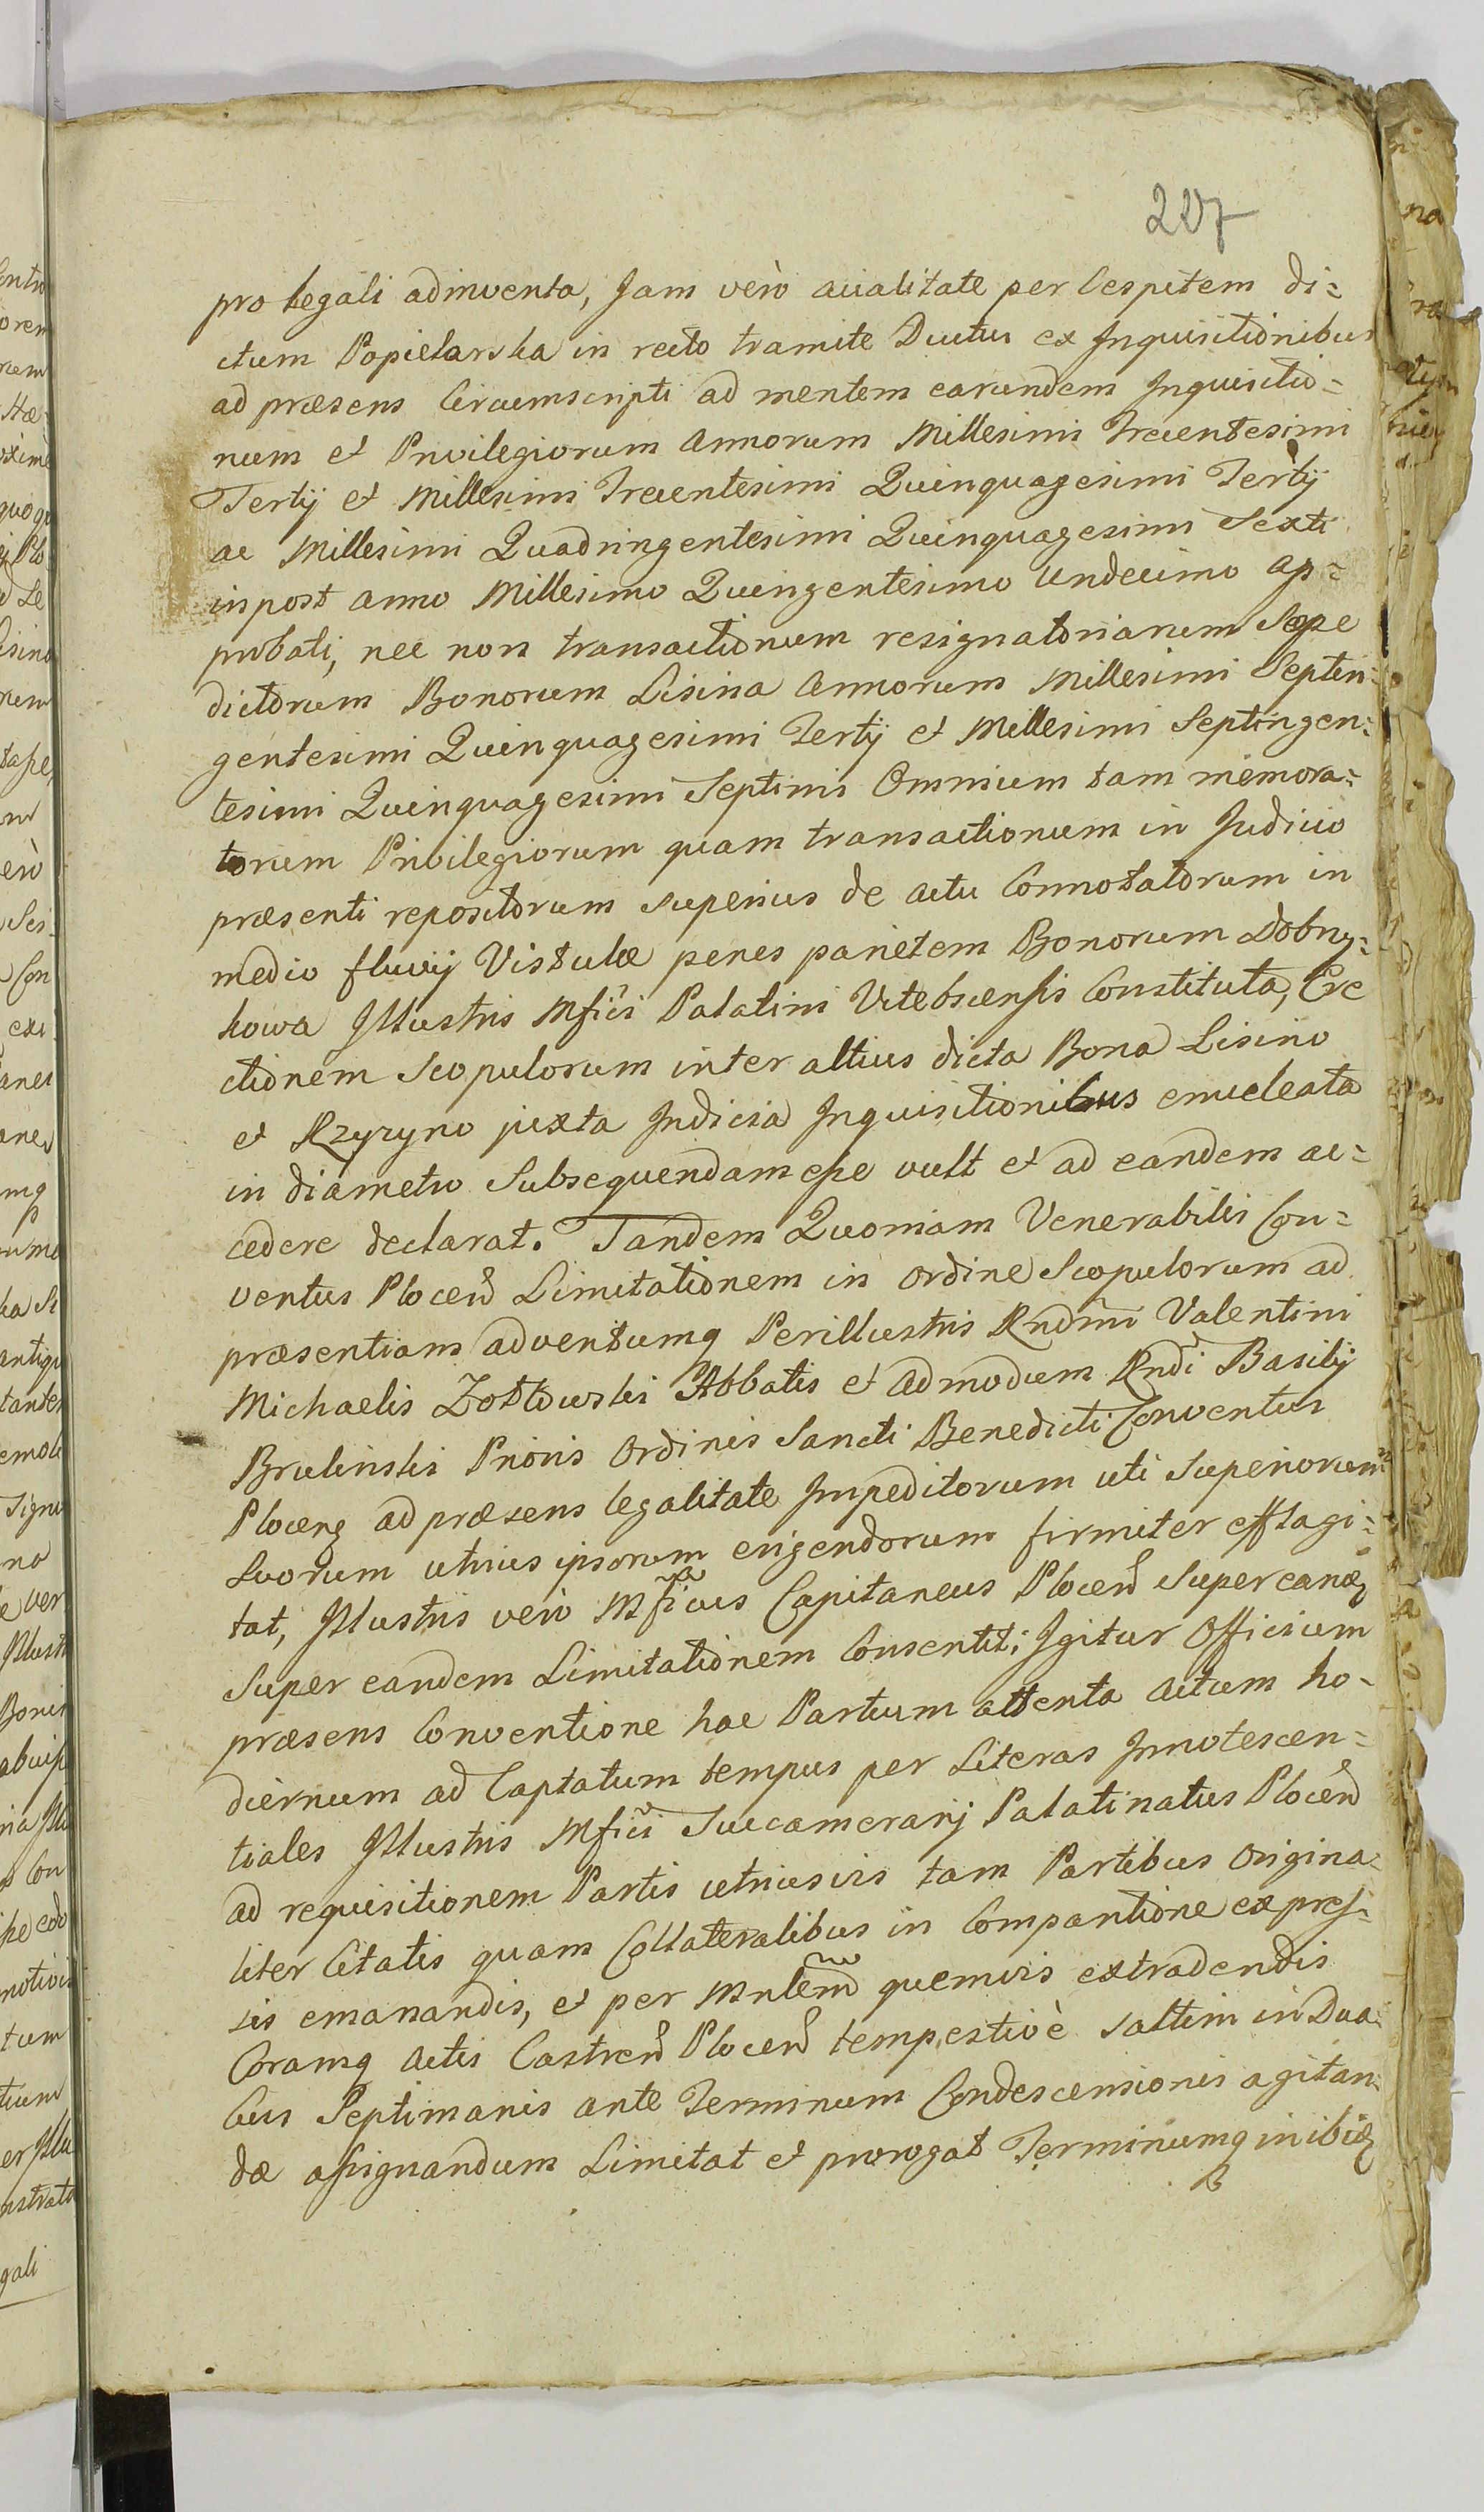 227
pro legali adinventa, Jam verò aviàlitate per Cespitem di=
ctum Popielarska in recto tramite Ductus ex Inquisitionibus
ad præsens Circumscripti ad mentem earundem Inquisitio=
num et Privilegiorum Annorum Millesimi Trecentesimi
Tertij et Millesimi Trecentesimi Quinquagesimi Tertij
ac Millesimi Quadringentesimi Quinquagesimi Sexti
inpost anno Millesimo Quingentesimo Undecimo ap=
probati, nec non transactionum resignatoriarum Sæpe
dictorum Bonorum Lisina Annorum Millesimi Septin=
gentesimi Quinquagesimi Tertij et Millesimi Septingen=
tesimi Quinquagesimi Septimi Omnium tam memora=
torum Privilegiorum quam transactionum in Judicio
præsenti repositorum superius de actu Connotatorum in
medio fluvij Vistulæ penes parietem Bonorum Dobrzy=
kowa Illustris Mfici Palatini Vitebscensis Constituta, Ere
ctionem Scopulorum inter altius dicta Bona Lisino
et Rzyzyno juxta Indicia Inquisitionibus enucleata
in diametro Subsequendam esse vult et ad eandem ac=
cedere declarat. Tandem Quoniam Venerabilis Con=
ventus Plocen Limitationem in ordine Scopulorum ad
præsentiam adventumq Perillustris Rndmi Valentini
Michaelis Zołtowski Abbatis et Admodum Rndi Basilij
Brulinski Prioris Ordinis Sancti Benedicti Conventus
Plocenq ad præsens legalitate Impeditorum uti Superiorum
Suorum utrius ipsorum erigendorum firmiter efflagi=
tat, Illustris verò Mficus Capitaneus Plocen Super eanq
Super eandem Limitationem Consentit; Igitur Officium
præsens Conventione hac Partium attenta Actum ho=
diernum ad Captatum tempus per Literas Innotescen=
tiales Illustris Mfici Succamerarij Palatinatus Plocen
ad requisitionem Partis utriusvis tam Partibus Origina=
liter Citatis quam Collateralibus in Comparitione expres=
sis emanandis, et per Mnlem quemvis extradendis
Coramq Actis Castren Plocen tempestivè saltim in Dua=
bus Septimanis ante Terminum Condescensionis agitan=
dæ assignandum Limitat et prorogat Terminumq inibiq